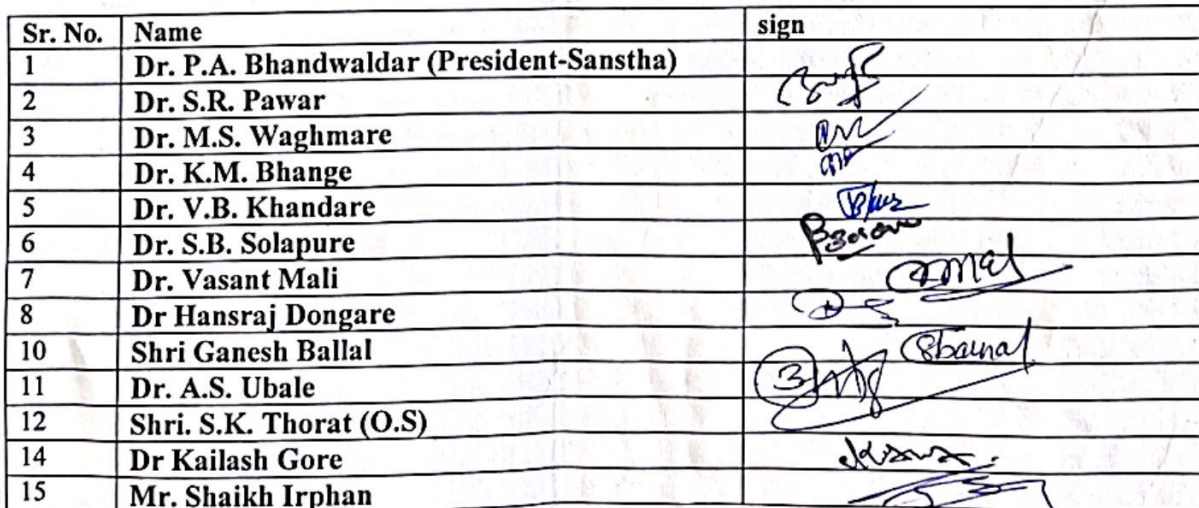 Sr. No. Name sign
1 Dr. P.A. Bhandwaldar (President-Sanstha)
2 Dr. S.R. Pawar
3 Dr. M.S. Waghmare
4 Dr. K.M. Bhange
5 Dr. V.B. Khandare
6 Dr. S.B. Solapure
7 Dr. Vasant Mali
8 Dr Hansraj Dongare
10 Shri Ganesh Ballal
11 Dr. A.S. Ubale
12 Shri. S.K. Thorat (O.S)
14 Dr Kailash Gore
15 Mr. Shaikh Irphan